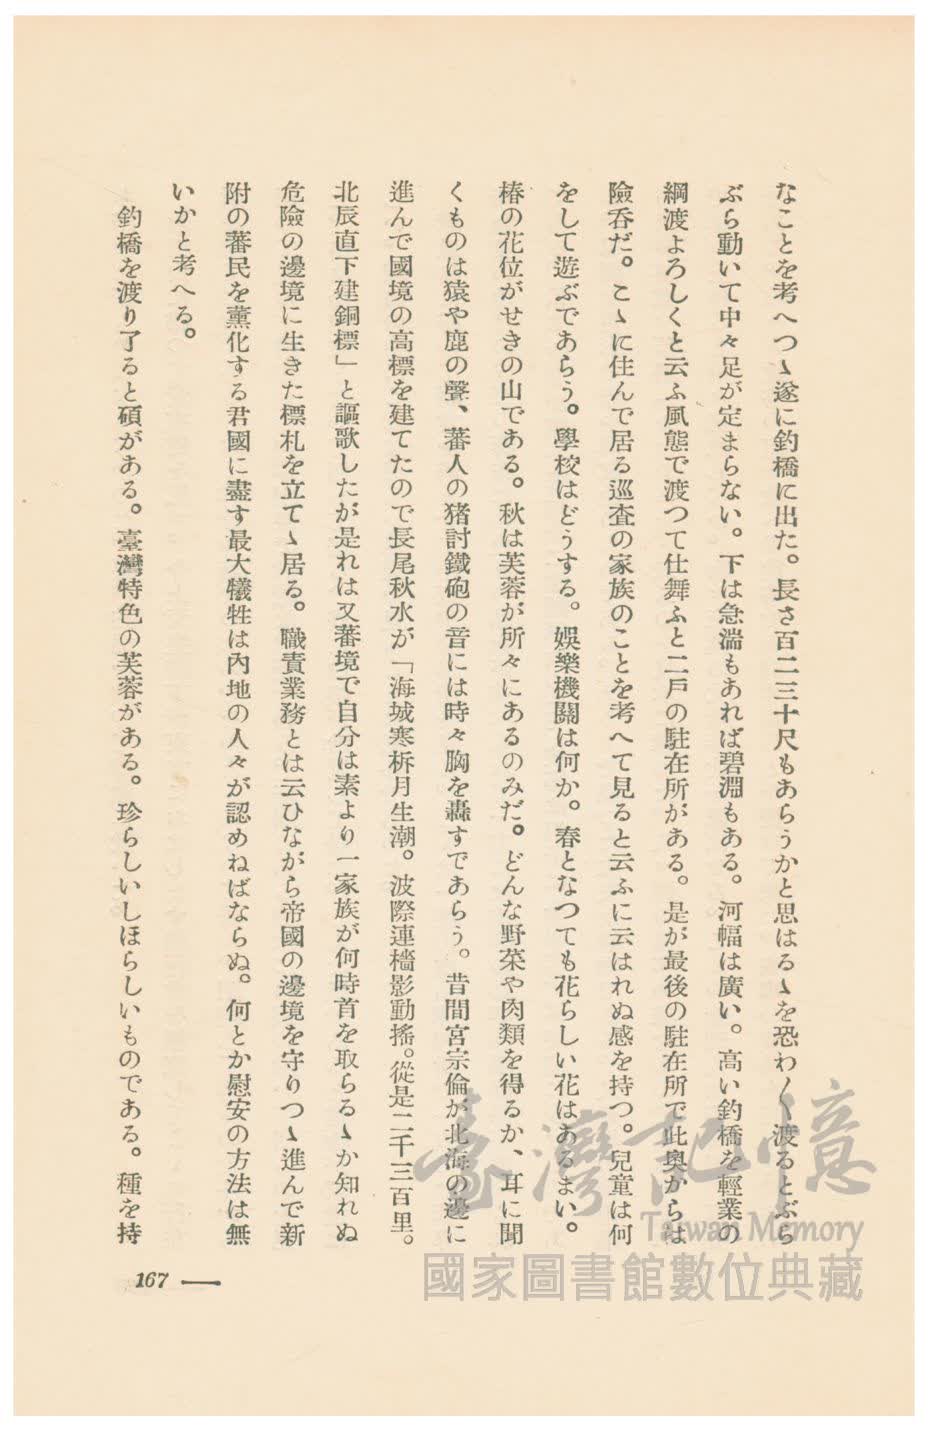 なことを考へつゝ遂に釣橋に出た。長さ百二三十尺もあらうかと思はるゝを恐わ〳〵渡るとぶら
ぶら動いて中々足が定まらない。下は急湍もあれば碧淵もある。河幅は廣い。高い釣橋を輕業の
綱渡よろしくと云ふ風態で渡つて仕舞ふと二戸の駐在所がある。是が最後の駐在所で此奧からは
險呑だ。こゝに住んで居る巡査の家族のことを考へて見ると云ふに云はれぬ感を持つ。兒童は何
をして遊ぶであらう。學校はどうする。娯樂機關は何か。春となつても花らしい花はあるまい。
椿の花位がせきの山である。秋は芙蓉が所々にあるのみだ。どんな野菜や肉類を得るか、耳に聞
くものは猿や鹿の聲、蕃人の猪討鐵砲の音には時々胸を轟すであらう。昔間宮宗倫が北海の邊に
進んで國境の高標を建てたので長尾秋水が「海城寒柝月生潮。波際連檣影動搖。從是二千三百里。
北辰直下建銅標」と謳歌したが是れは又蕃境で自分は素より一家族が何時首を取らるゝか知れぬ
危險の邊境に生きた標札を立てゝ居る。職責業務とは云ひながら帝國の邊境を守りつゝ進んで新
附の蕃民を薫化する君國に盡す最大犧牲は內地の人々が認めねばならぬ。何とか慰安の方法は無
いかと考へる。
釣橋を渡り了ると碩がある。臺灣特色の芙蓉がある。珍らしいしほらしいものである。種を持
167
臺灣記憶
Taiwan Memory
國家圖書館數位典藏